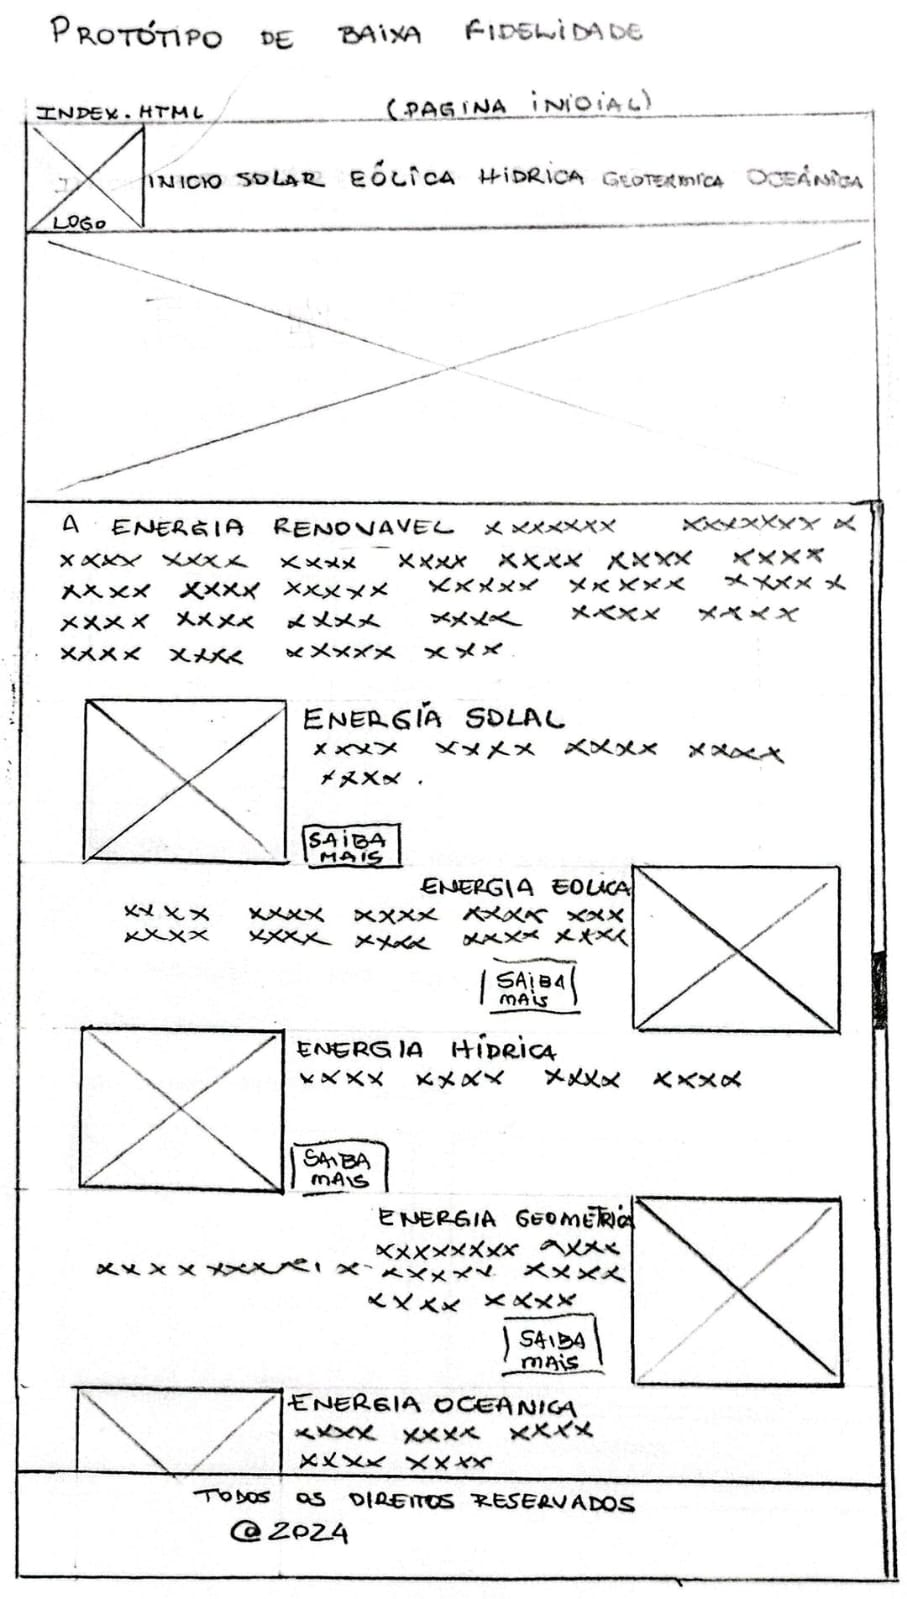 PROTÓTIPO DE BAIXA FIDELIDADE
INDEX.HTML (PAGINA INIDIAL)
LOGO
INICIO SOLAR EÓLICA HIDRICA GEOTERMICA OCEÁNICA
A ENERGIA RENOVAVEL XXXXXXX XXXXXXX X
XXXX XXXX XXXX XXXX XXXX XXXX XXXX
XXXX XXXX XXXXX XXXXX XXXXX XXXX X
XXXX XXXX XXXX XXXX XXXX XXXX
XXXX XXXX XXXXX XXX
ENERGÍA SOLAL
XXXX XXXX XXXX XXXX
XXXX .
SAIBA
MAIS
ENERGIA EOLICA
XXXX XXXX XXXX XXXX XXX
XXXX XXXX XXXX XXXX XXXX
SAIBA
MAIS
ENERGIA HÍDRICA
XXXX XXXX XXXX XXXX
SAIBA
MAIS
ENERGIA GEOMETRICA
XXXXXXXX XXXX
XXXXX XXXX
XXXX XXXX
SAIBA
MAIS
ENERGIA OCEANICA
XXXX XXXX XXXX
XXXX XXXX
TODOS OS DIREITOS RESERVADOS
@2024